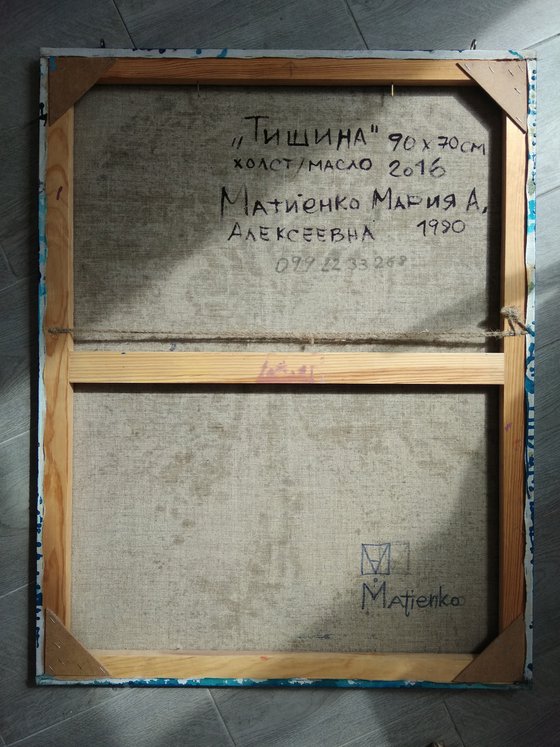 „Тишина" 90 х 70 см
холст/масло 2016
Матіенко Мария А.
Алексеевна 1990
099 22 33 268
Matienko